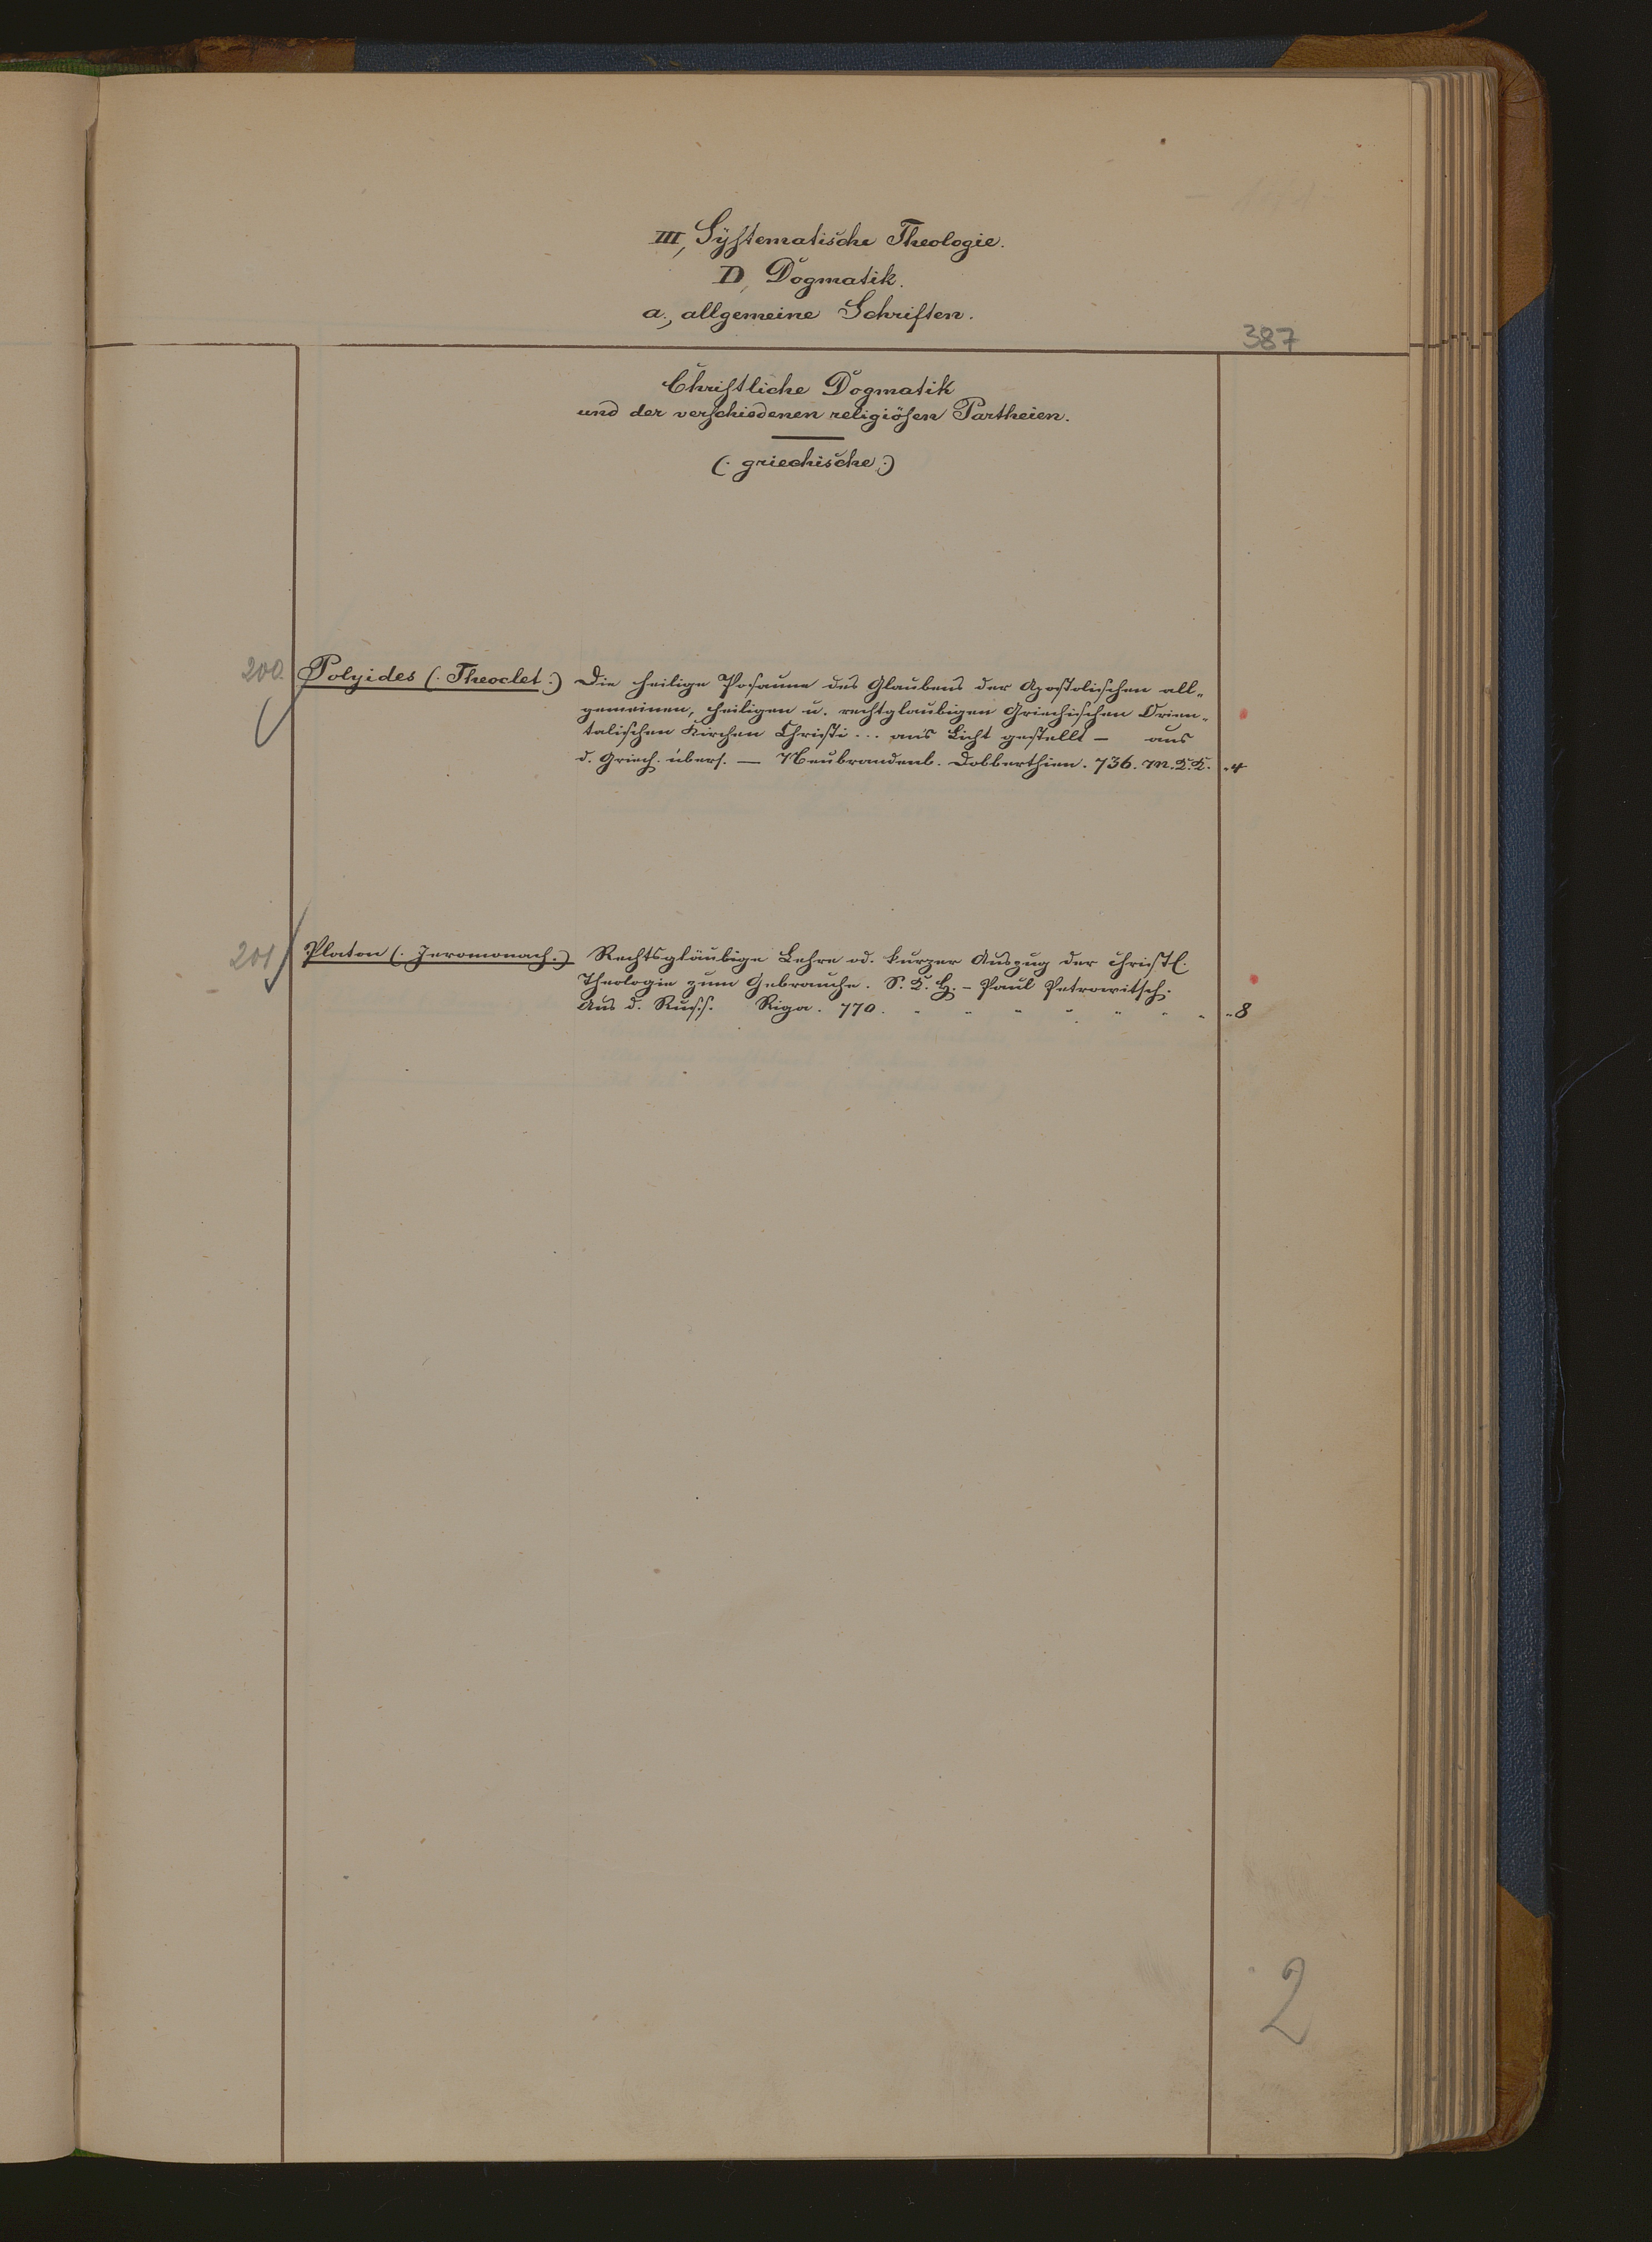 III, Systematische Theologie.
D, Dogmatik.
a., allgemeine Schriften.
387
Christliche Dogmatik
und der verschiedenen religiösen Partheien.
(: griechische :)
200. Polyides (: Theoclet :) Die heilige Posaune des Glaubens der Apostolischen all„
gemeinen, heiligen u. rechtglaubigen Griechischen Orien„
talischen Kirchen Christi ... ans Licht gestellt — aus
d. Griech. übers. — Neubrandenb. Dobberthien. 736. m. K.K. „4
201 Platon (: Jeromonach :) Rechtsgläubige Lehre od. kurzer Auszug der christl.
Theologie zum Gebrauche. S. K. H. – Paul Petrowitsch.
Aus d. Russ. Riga. 770. „ „ „ „ „ „ „ „8
2